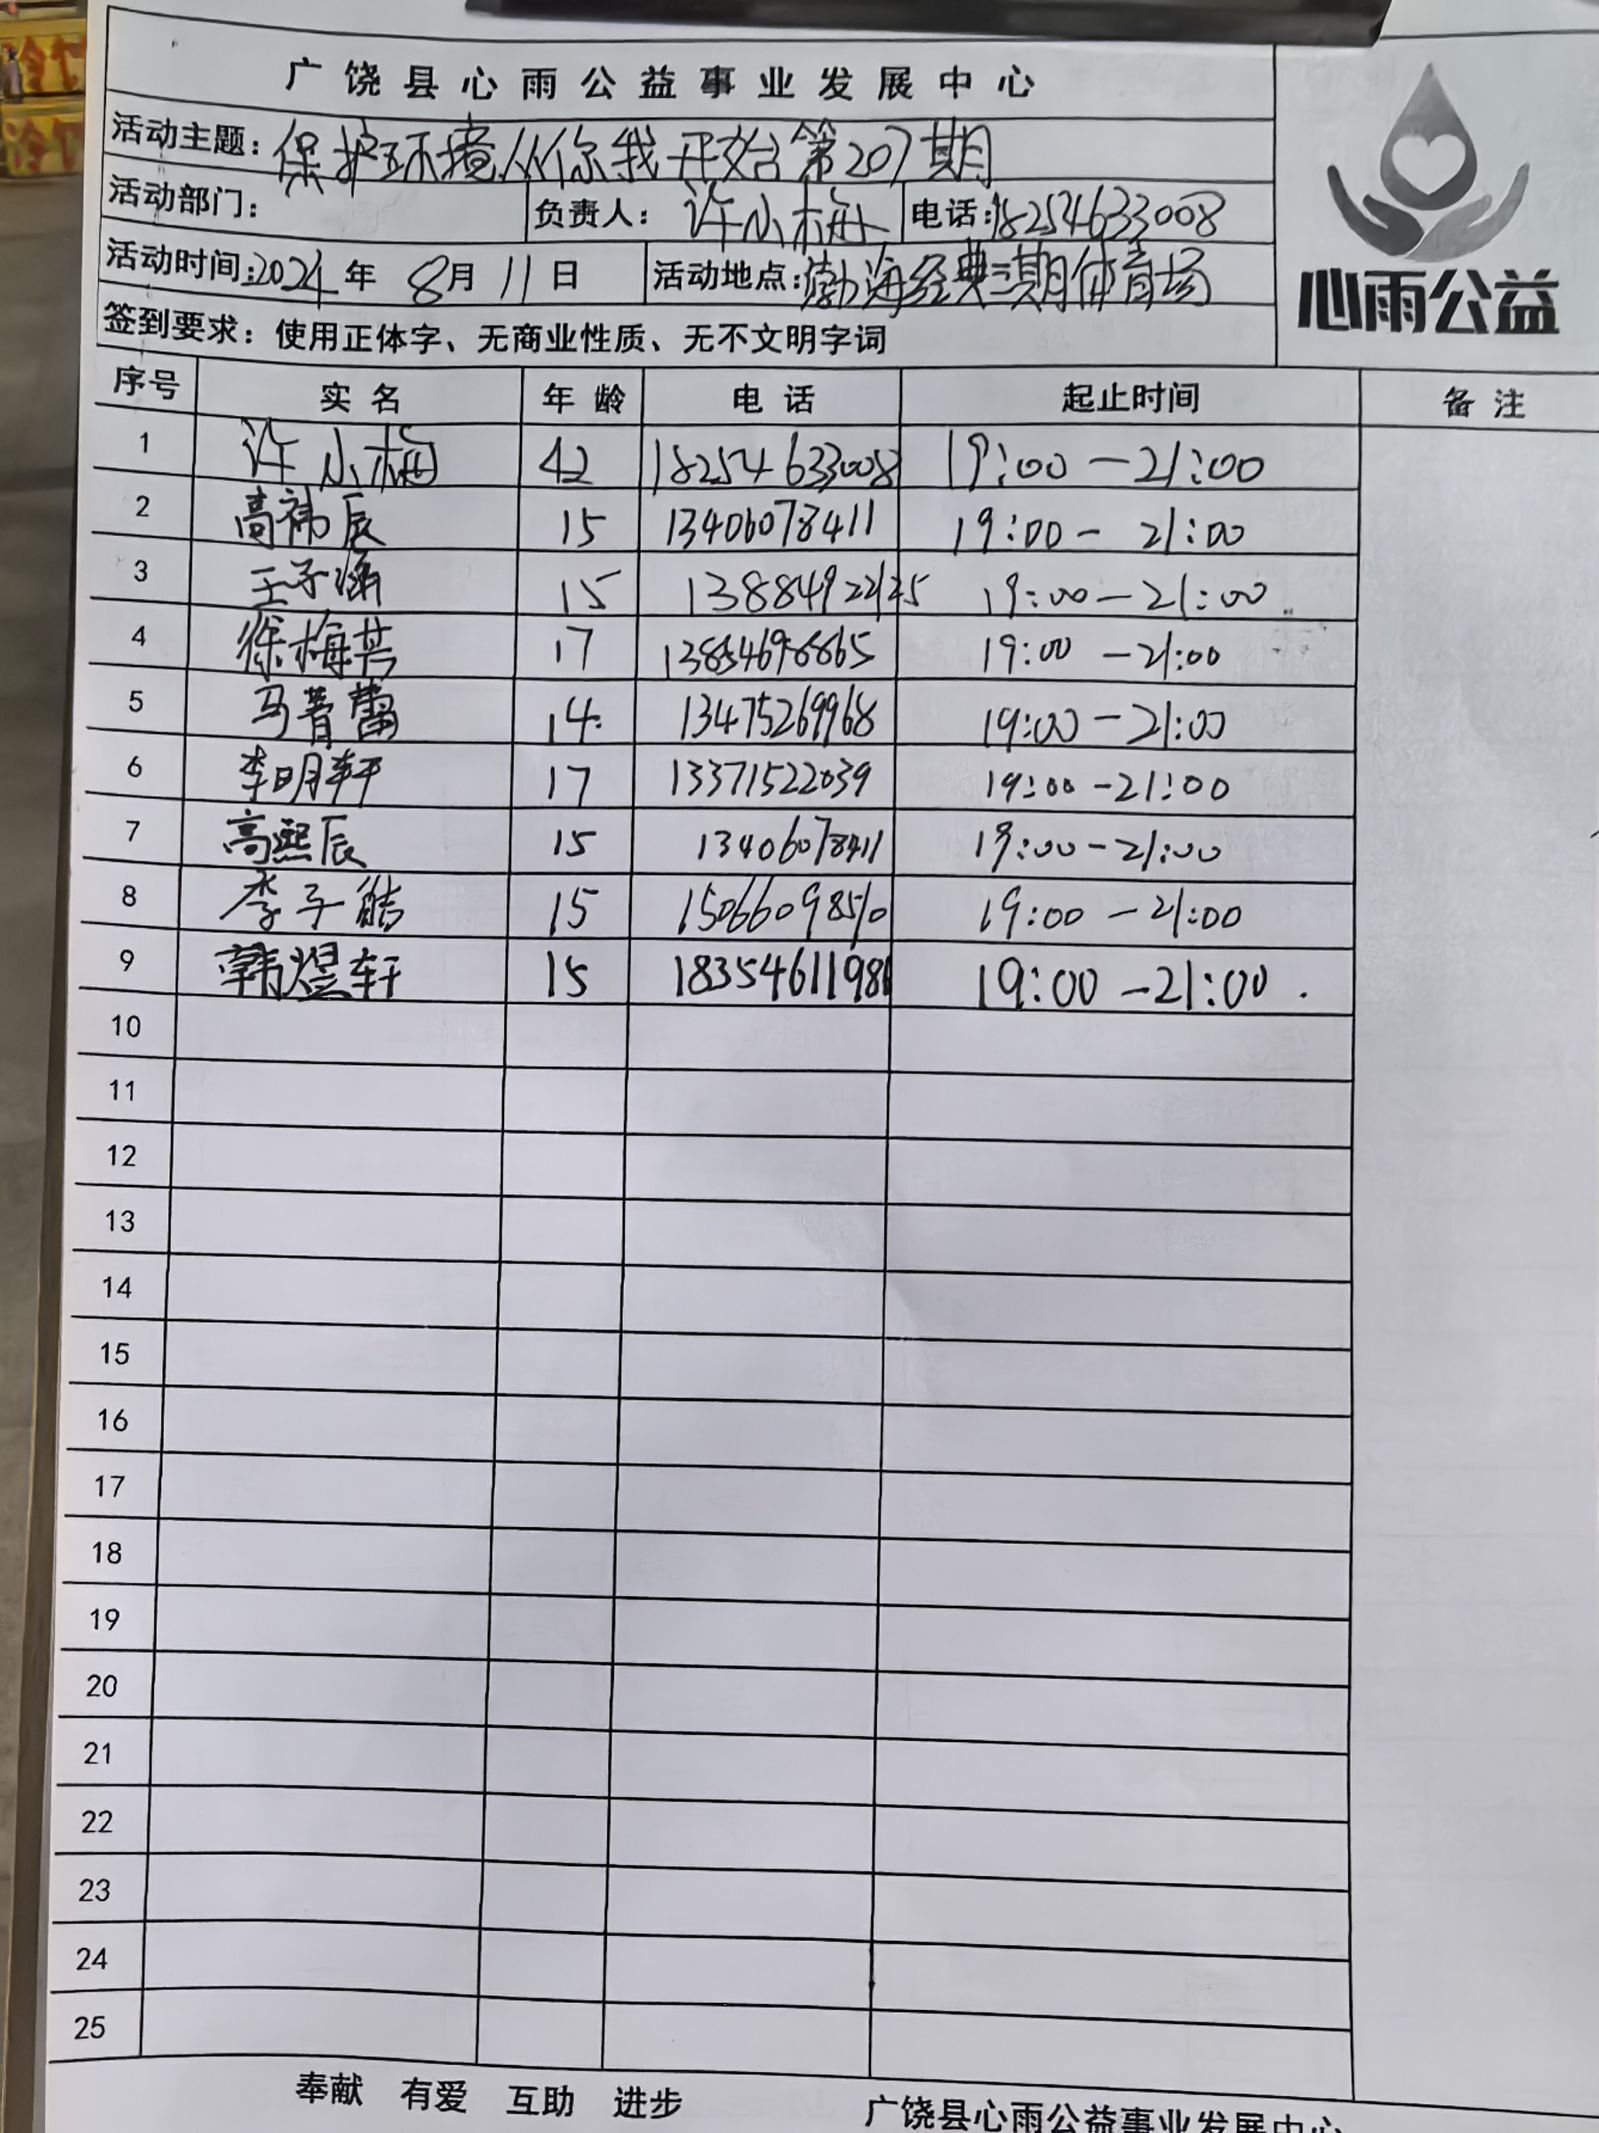 广饶县心雨公益事业发展中心
活动主题：保护环境从你我开始第207期
活动部门： 负责人：许小梅 电话：18254633008
活动时间：2024年8月11日 活动地点：渤海经典三期体育场
心雨公益
签到要求：使用正体字、无商业性质、无不文明字词
序号 实名 年龄 电话 起止时间 备注
1 许小梅 42 18254633008 19:00-21:00
2 高祎辰 15 13406078411 19:00-21:00
3 王子涵 15 13884922125 19:00-21:00
4 徐梅 17 13854698865 19:00-21:00
5 马菁蕾 14 13475269968 19:00-21:00
6 李明轩 17 13371522039 19:00-21:00
7 高熙辰 15 13406078411 19:00-21:00
8 李子皓 15 15066098510 19:00-21:00
9 韩煜轩 15 18354611981 19:00-21:00
10
11
12
13
14
15
16
17
18
19
20
21
22
23
24
25
奉献 有爱 互助 进步 广饶县心雨公益事业发展中心